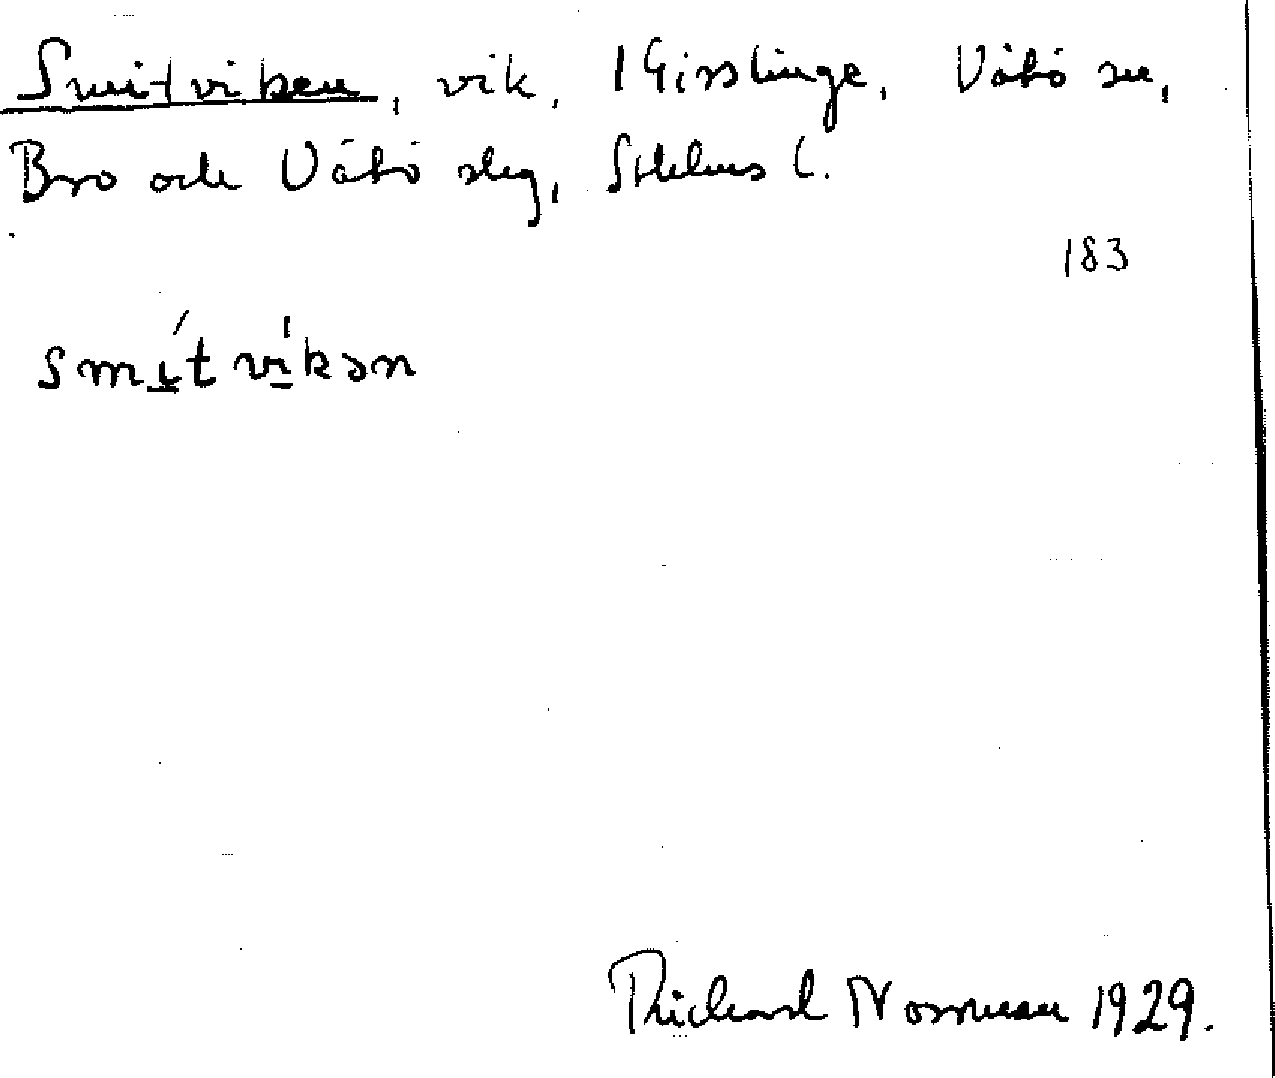 Smitviken, vik, 1 Gisslinge, Vätö sn,
Bro och Vätö slg, Sthlms l.
183
smítvíkən
Richard Norrman 1929.